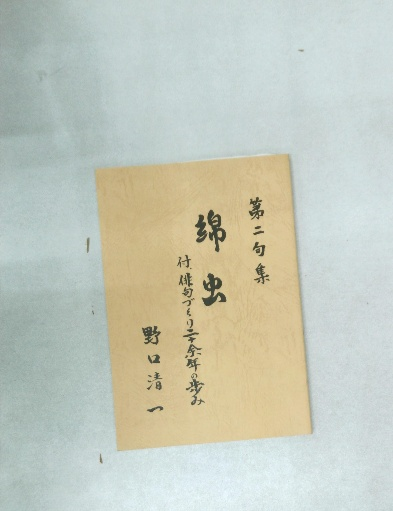 第二句集
綿虫
付、俳句づくり二十余年の歩み
野口清一